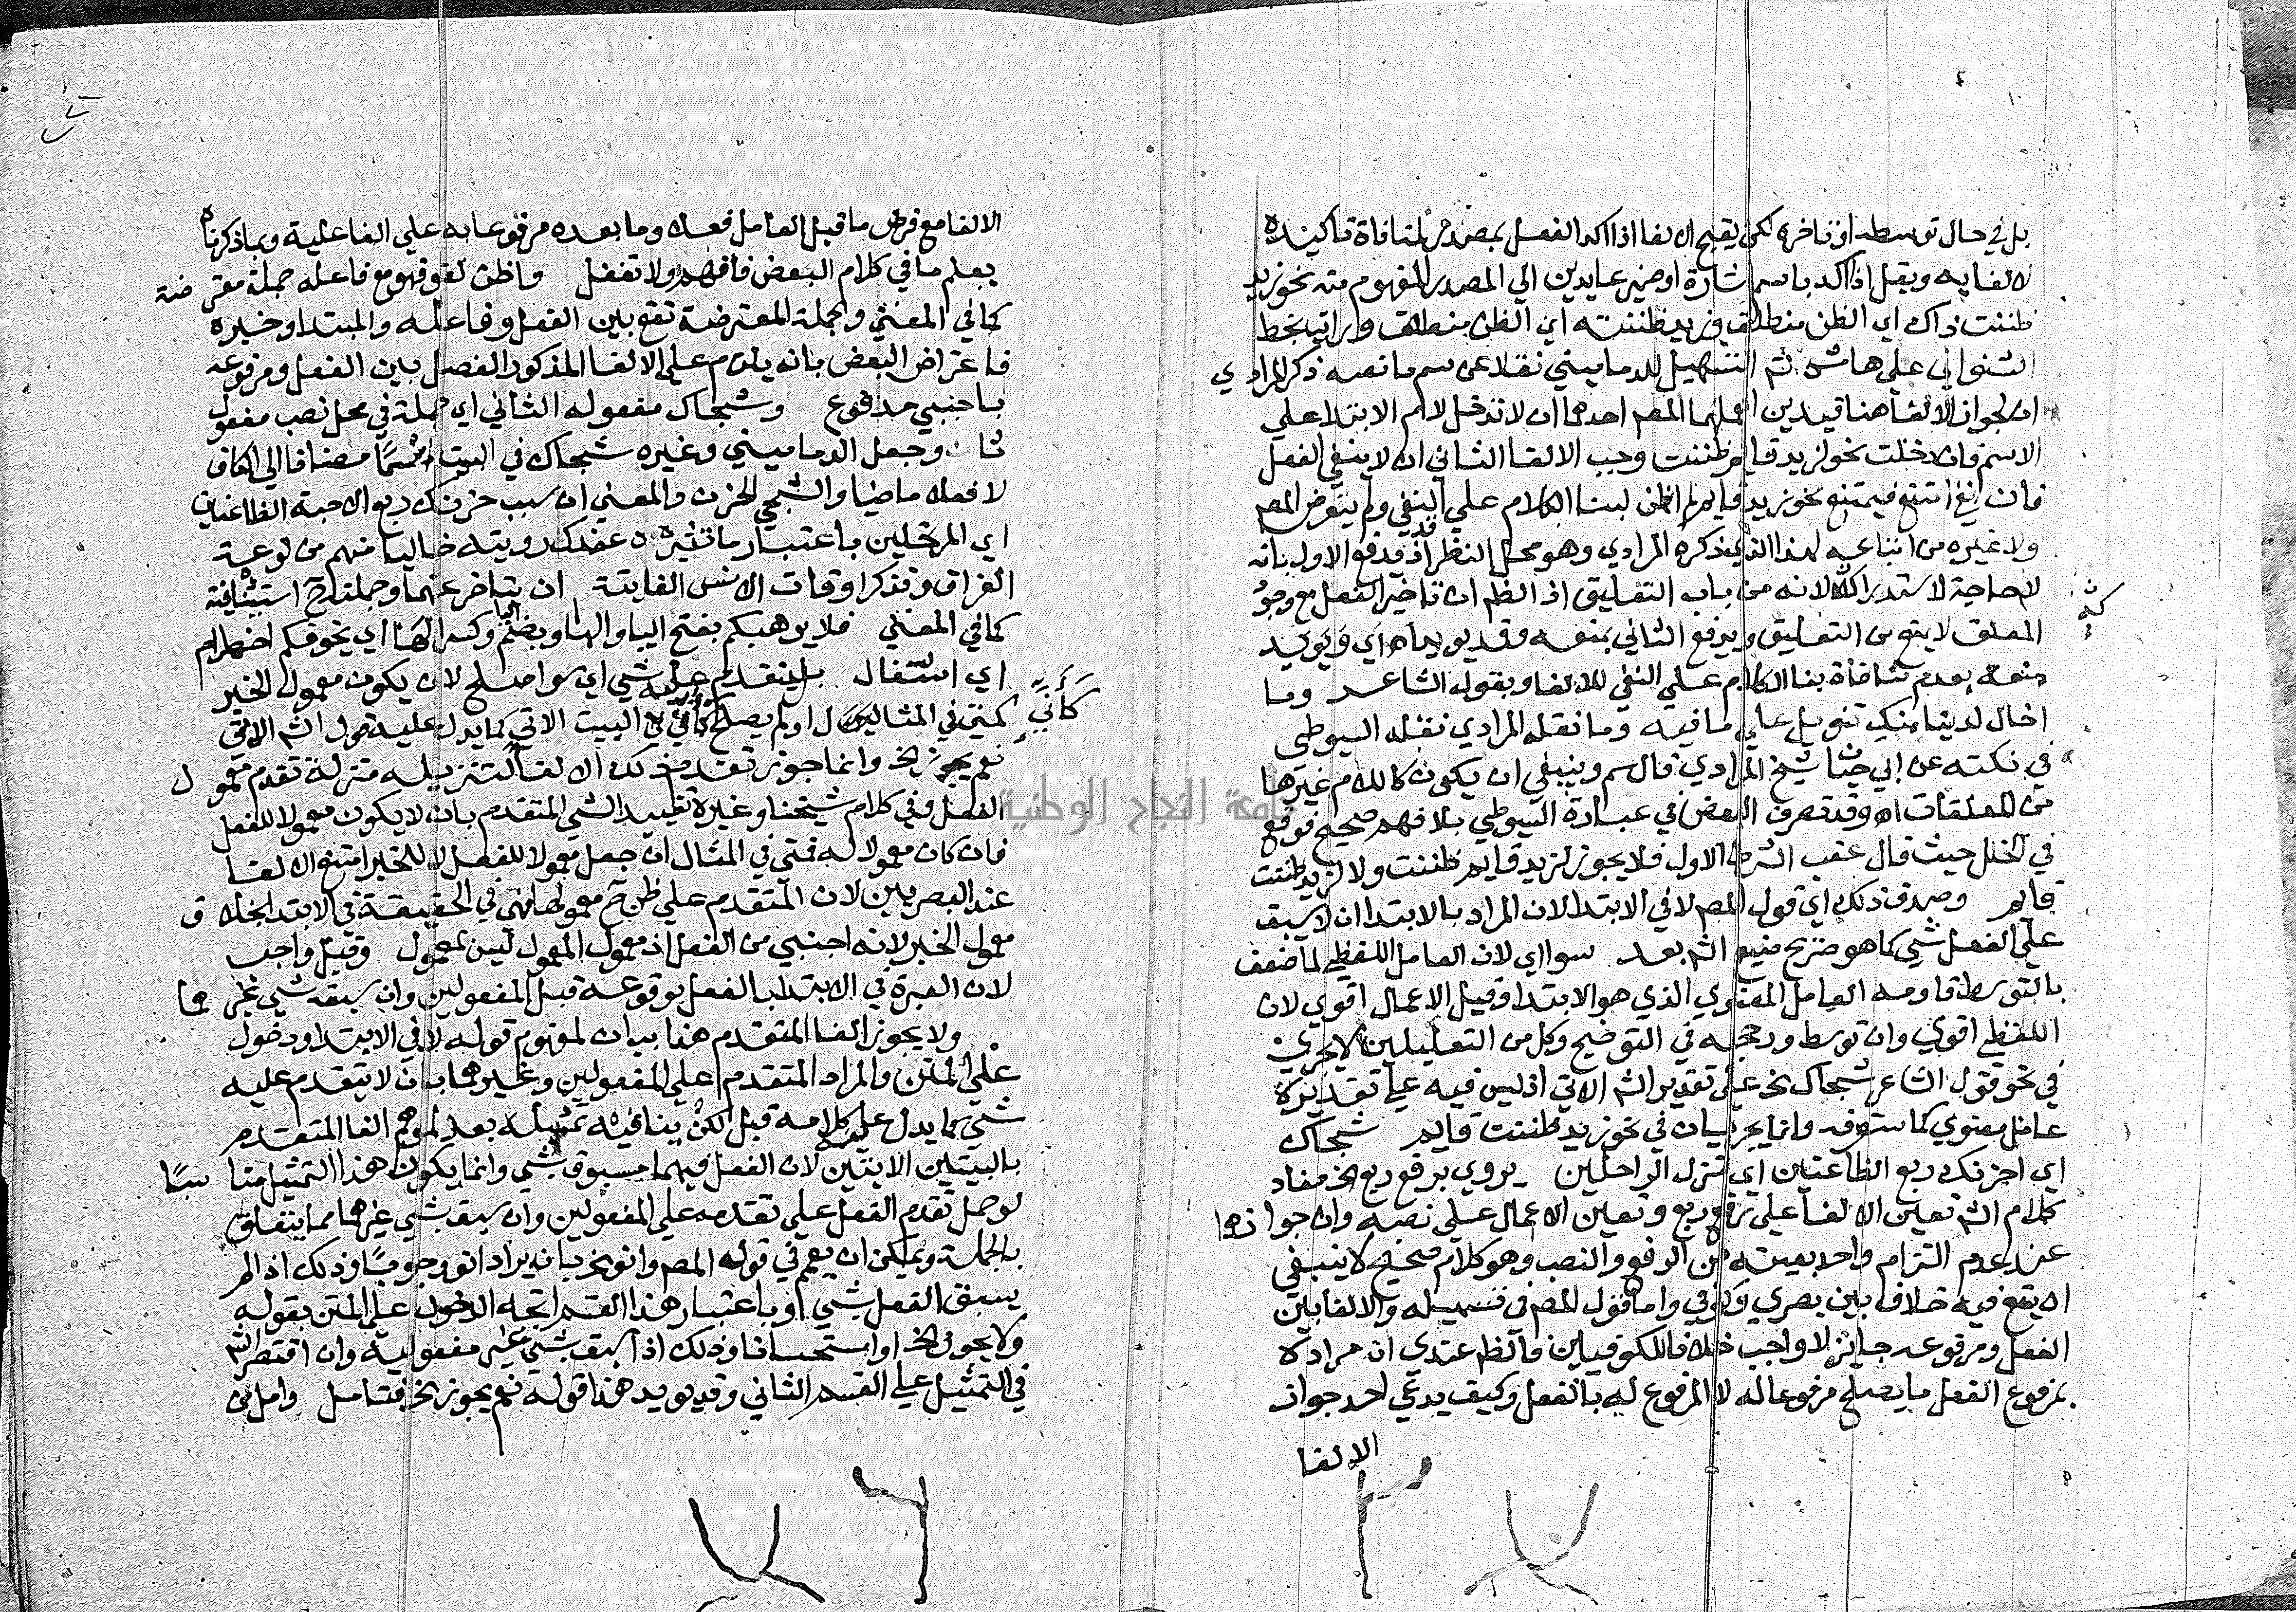 بل في حال توسطه او تاخره لكن يقبح الالغا اذا اكد الفعل بمصدر لمنافاة تاكيده
لالغايه ويقل اذا اكد باسم اشارة او ضمير عايدين الي المصدر المفهوم منه نحو زيد
ظننت ذاك اي الظن منطلق وزيد ظننته اي الظن منطلق ورايت بخط
الشنواني علي هامش شم التسهيل للدماميني نقلا عن سم ما نصه ذكر المرادي
ان لجواز الالغا هنا قيدين اهملهما المصم احدهما ان لا تدخل لام الابتدا علي
الاسم فان دخلت نحو لزيد قايم ظننت وجب الالغا الثاني ان لا ينفي الفعل
فان نفي امتنع فيمتنع نحو زيد قايم لم اظن لبنا الكلام علي النفي ولم يتعرض المصم
ولا غيره من اتباعه لهذا الذي ذكره المرادي وهو محل النظر اذ قد يدفع الاول بانه
لا حاجة لاستدراكه لانه من باب التعليق اذ الظم ان تاخير الفعل مع وجود
المعلق لا يمنع من التعليق ويدفع الثاني بمنعه وقد يويد اه اي ويويد
منعه بعدم منافاة بنا الكلام علي النفي للالغا وبقول الشاعر وما
اخال لدينا منك تنويل علي ما فيه وما نقله المرادي نقله السيوطي
في نكته عن ابي حيان شيخ المرادي قال سم وينبغي ان يكون كاللام غيرها
من المعلقات اه وقد تصرف البعض في عبارة السيوطي بلا فهم صحيح فوقع
في الخلل حيث قال عقب الشرط الاول فلا يجوز لزيد قايم ظننت ولا لزيد ظننت
قايم وصدق ذلك اي قول المصم لا في الابتدا لان المراد بالابتدا ان لا يسبق
علي الفعل شي كما هو صريح صنيع الشم بعد سوا اي لان العامل اللفظي لما ضعف
بالتوسط قاومه العامل المعنوي الذي هو الابتدا وقيل الاعمال اقوي لان
اللفظي اقوي وان توسط ورجحه في التوضيح وكل من التعليلين لا يجري
في نحو قول الشاعر شجاك الخ علي تقدير الشم الاتي اذ ليس فيه علي تقديره
عامل معنوي كما ستعرفه وانما يجريان في نحو زيد ظننت قايم شجاك
اي احزنك ربع الظاعنين اي منزل الراحلين يروي برفع ربع الخ مفاد
كلام الشم تعين الالغا علي رفع ربع وتعين الاعمال علي نصبه وان جوازهما
عند عدم التزام واحد بعينه من الرفع والنصب وهو كلام صحيح لا ينبغي
ان يقع فيه خلاف بين بصري وكوفي واما قول المصم في تسهيله والالغا بين
الفعل ومرفوعه جايز لا واجب خلافا للكوفيين فالظم عندي ان مراده
بمرفوع الفعل ما يصلح مرفوعا له لا المرفوع له بالفعل وكيف يدعي احد جواز
الالغا
الالغا مع فرض ما قبل العامل فعلا وما بعده مرفوعا به علي الفاعلية وبما ذكرناه
يعلم ما في كلام البعض فافهم ولا تغفل واظن لغو فهو مع فاعله جملة معترضة
كما في المغني والجملة المعترضة تقع بين الفعل وفاعله والمبتدا وخبره
فاعتراض البعض بانه يلزم علي الالغا المذكور الفصل بين الفعل ومرفوعه
باجنبي مدفوع وشجاك مفعوله الثاني اي جملة في محل نصب مفعول
ثان وجعل الدماميني وغيره شجاك في البيت اسما مضافا الي الكاف
لا فعلا ماضيا والشجي الحزن والمعني ان سبب حزنك ربع الاحبة الظاعنين
اي المرتحلين باعتبار ما تثيره عندك رويته خاليا منهم من لوعة
الفراق وتذكر اوقات الانس الفايتة ان يتاخر عنهما وجملته ح استينافية
كما في المغني فلا يوهبكم بفتح اليا والها وبضم اليا وكسر الها اي يخوفكم اضطرام
اي اشتغال بل يتقدم عليه شي اي سوا صلح لان يكون معمول الخبر
كمتي في المثالين اولا ولم يصلح كاني في البيت الاتي كما يدل عليه قول الشم الاتي
كَأَنِّي
نعم يجوز الخ وانما جوز تقدم ذلك الالغا لتنزيله منزلة تقدم معمول
الفعل وفي كلام شيخنا وغيره تقييد الشي المتقدم بان لا يكون معمولا للفعل
فان كان معمولا له فمتي في المثال ان جعل معمولا للفعل لا للخبر امتنع الالغا
عند البصريين لان المتقدم علي ظن ح معمولها فهي في الحقيقة في الابتدا بخلاف
معمول الخبر لانه اجنبي من الفعل اذ معمول المعمول ليس بمعمول وقيل واجب
لان العبرة في الابتدا بالفعل بوقوعه قبل المفعولين وان سبقه شي غيرهما
ولا يجوز الغا المتقدم هنا بيان لمفهوم قوله لا في الابتدا ودخول
علي المتن والمراد المتقدم علي المفعولين وغيرهما بان لا يتقدم عليه
شي كما يدل عليه كلامه قبل لكن ينافيه تمثيله بعد لموهم الغا المتقدم
بالبيتين الاتيين لان الفعل فيهما مسبوق بشي وانما يكون هذا التمثيل مناسبا
لو حمل تقدم الفعل علي تقدمه علي المفعولين وان سبق بشي غيرهما مما يتعلق
بالجملة ويمكن ان يعمم في قوله المصم وانو الخ بان يراد انو وجوبا وذلك اذا لم
يسبق الفعل بشي او باعتبار هذا القسم اتجه الدخول علي المتن بقوله
ولا يجوز الخ او استحسانا وذلك اذا سبق بشي غير مفعوليه وان اقتصر الشم
في التمثيل علي القسم الثاني وقد يويد هذا قوله نعم يجوز الخ فتامل وامل ان